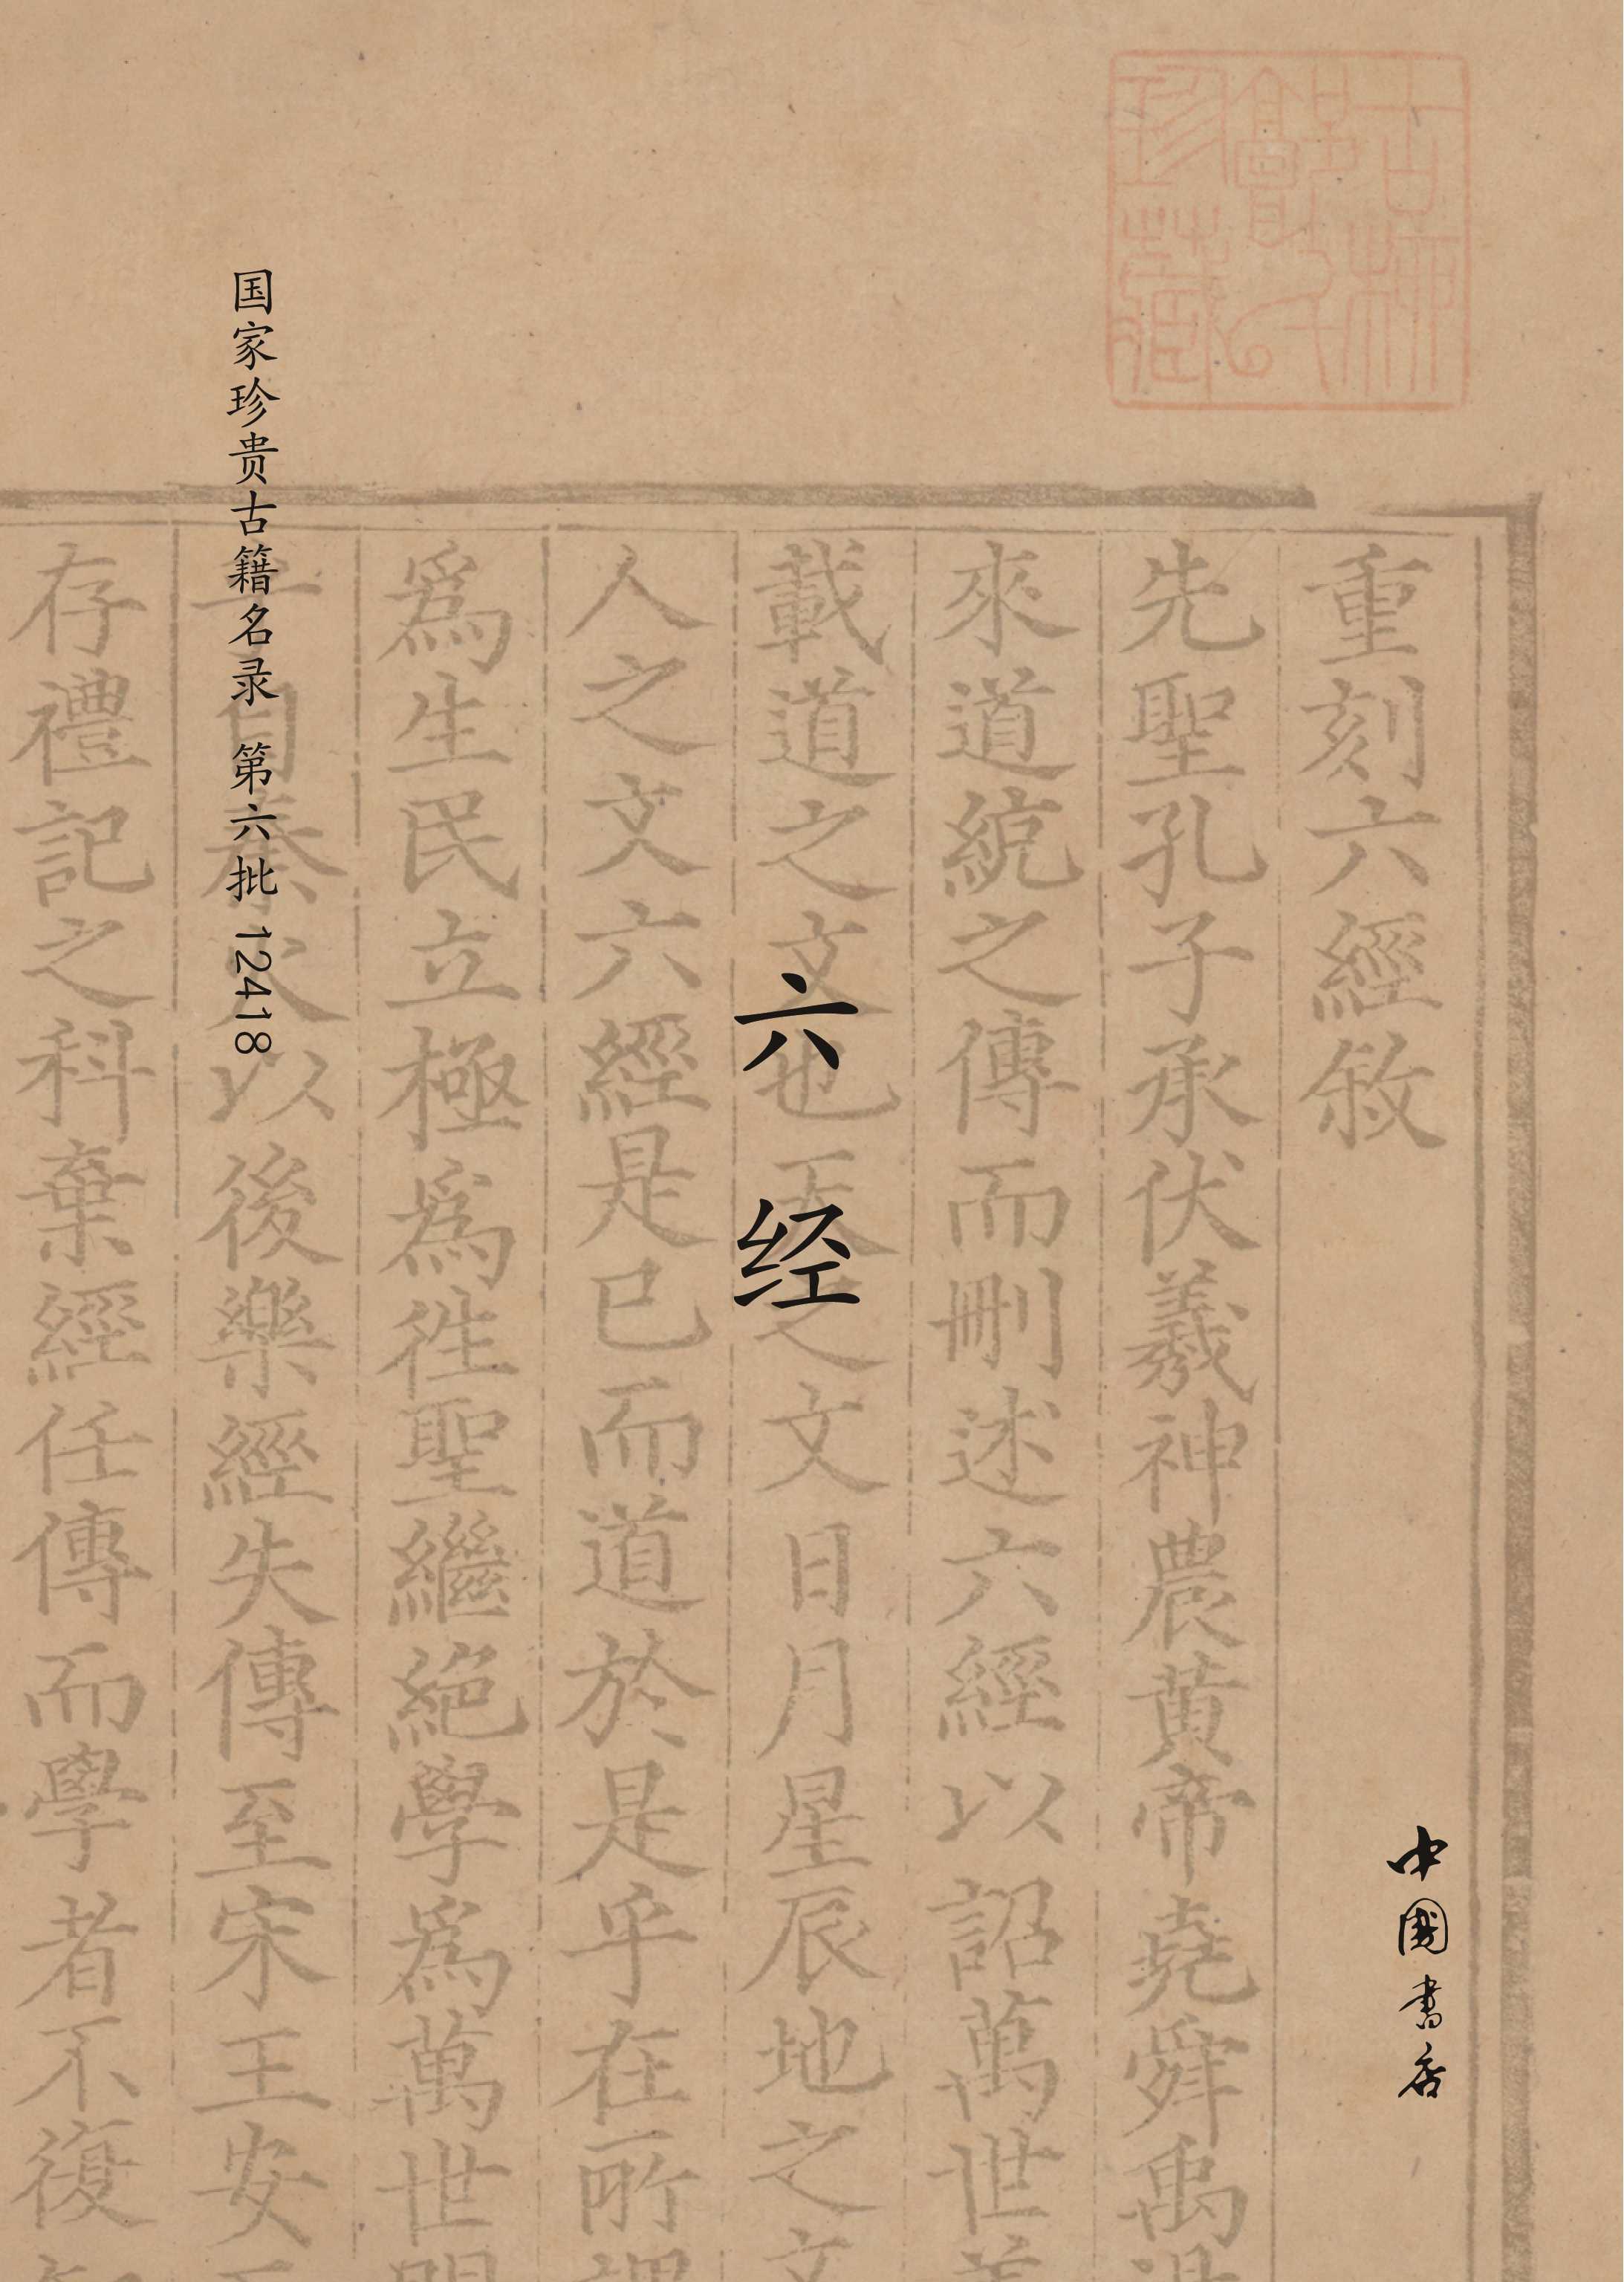 国家珍贵古籍名录 第六批 12418
六经
中國書店
重刻六經敘
先聖孔子承伏羲神農黄帝堯舜禹湯
來道統之傳而刪述六經以詔萬世盖
載道之文也天之文日月星辰地之文
人之文六經是已而道於是乎在所謂
爲生民立極爲徃聖繼絶學爲萬世開
自秦火以後樂經失傳至宋王安石
存禮記之科棄經任傳而學者不復知